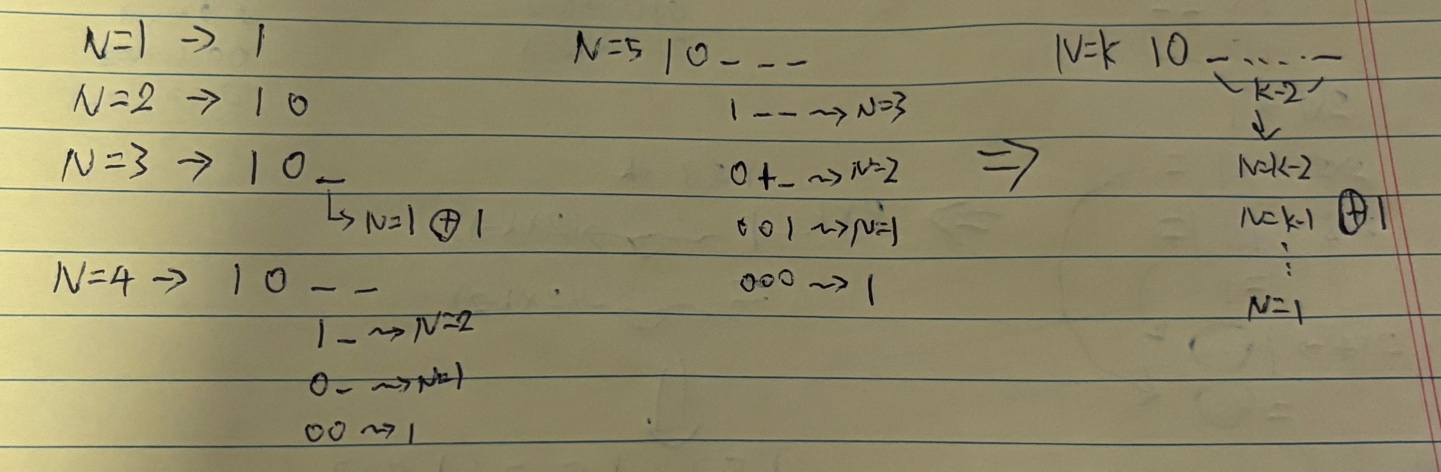 N=1 → 1
N=2 → 1 0
N=3 → 1 0 _
↳ N=1 ⊕ 1
N=4 → 1 0 _ _
1 _ ⇝ N=2
0 _ ⇝ N=1
00 ⇝ 1
N=5 1 0 _ _ _
1 _ _ ⇝ N=3
0 1 _ ⇝ N=2
0 0 1 ⇝ N=1
000 ⇝ 1
⇒
N=k 10 _ .... _
k-2
↓
N=k-2
N=k-1 ⊕ 1
⋮
N=1